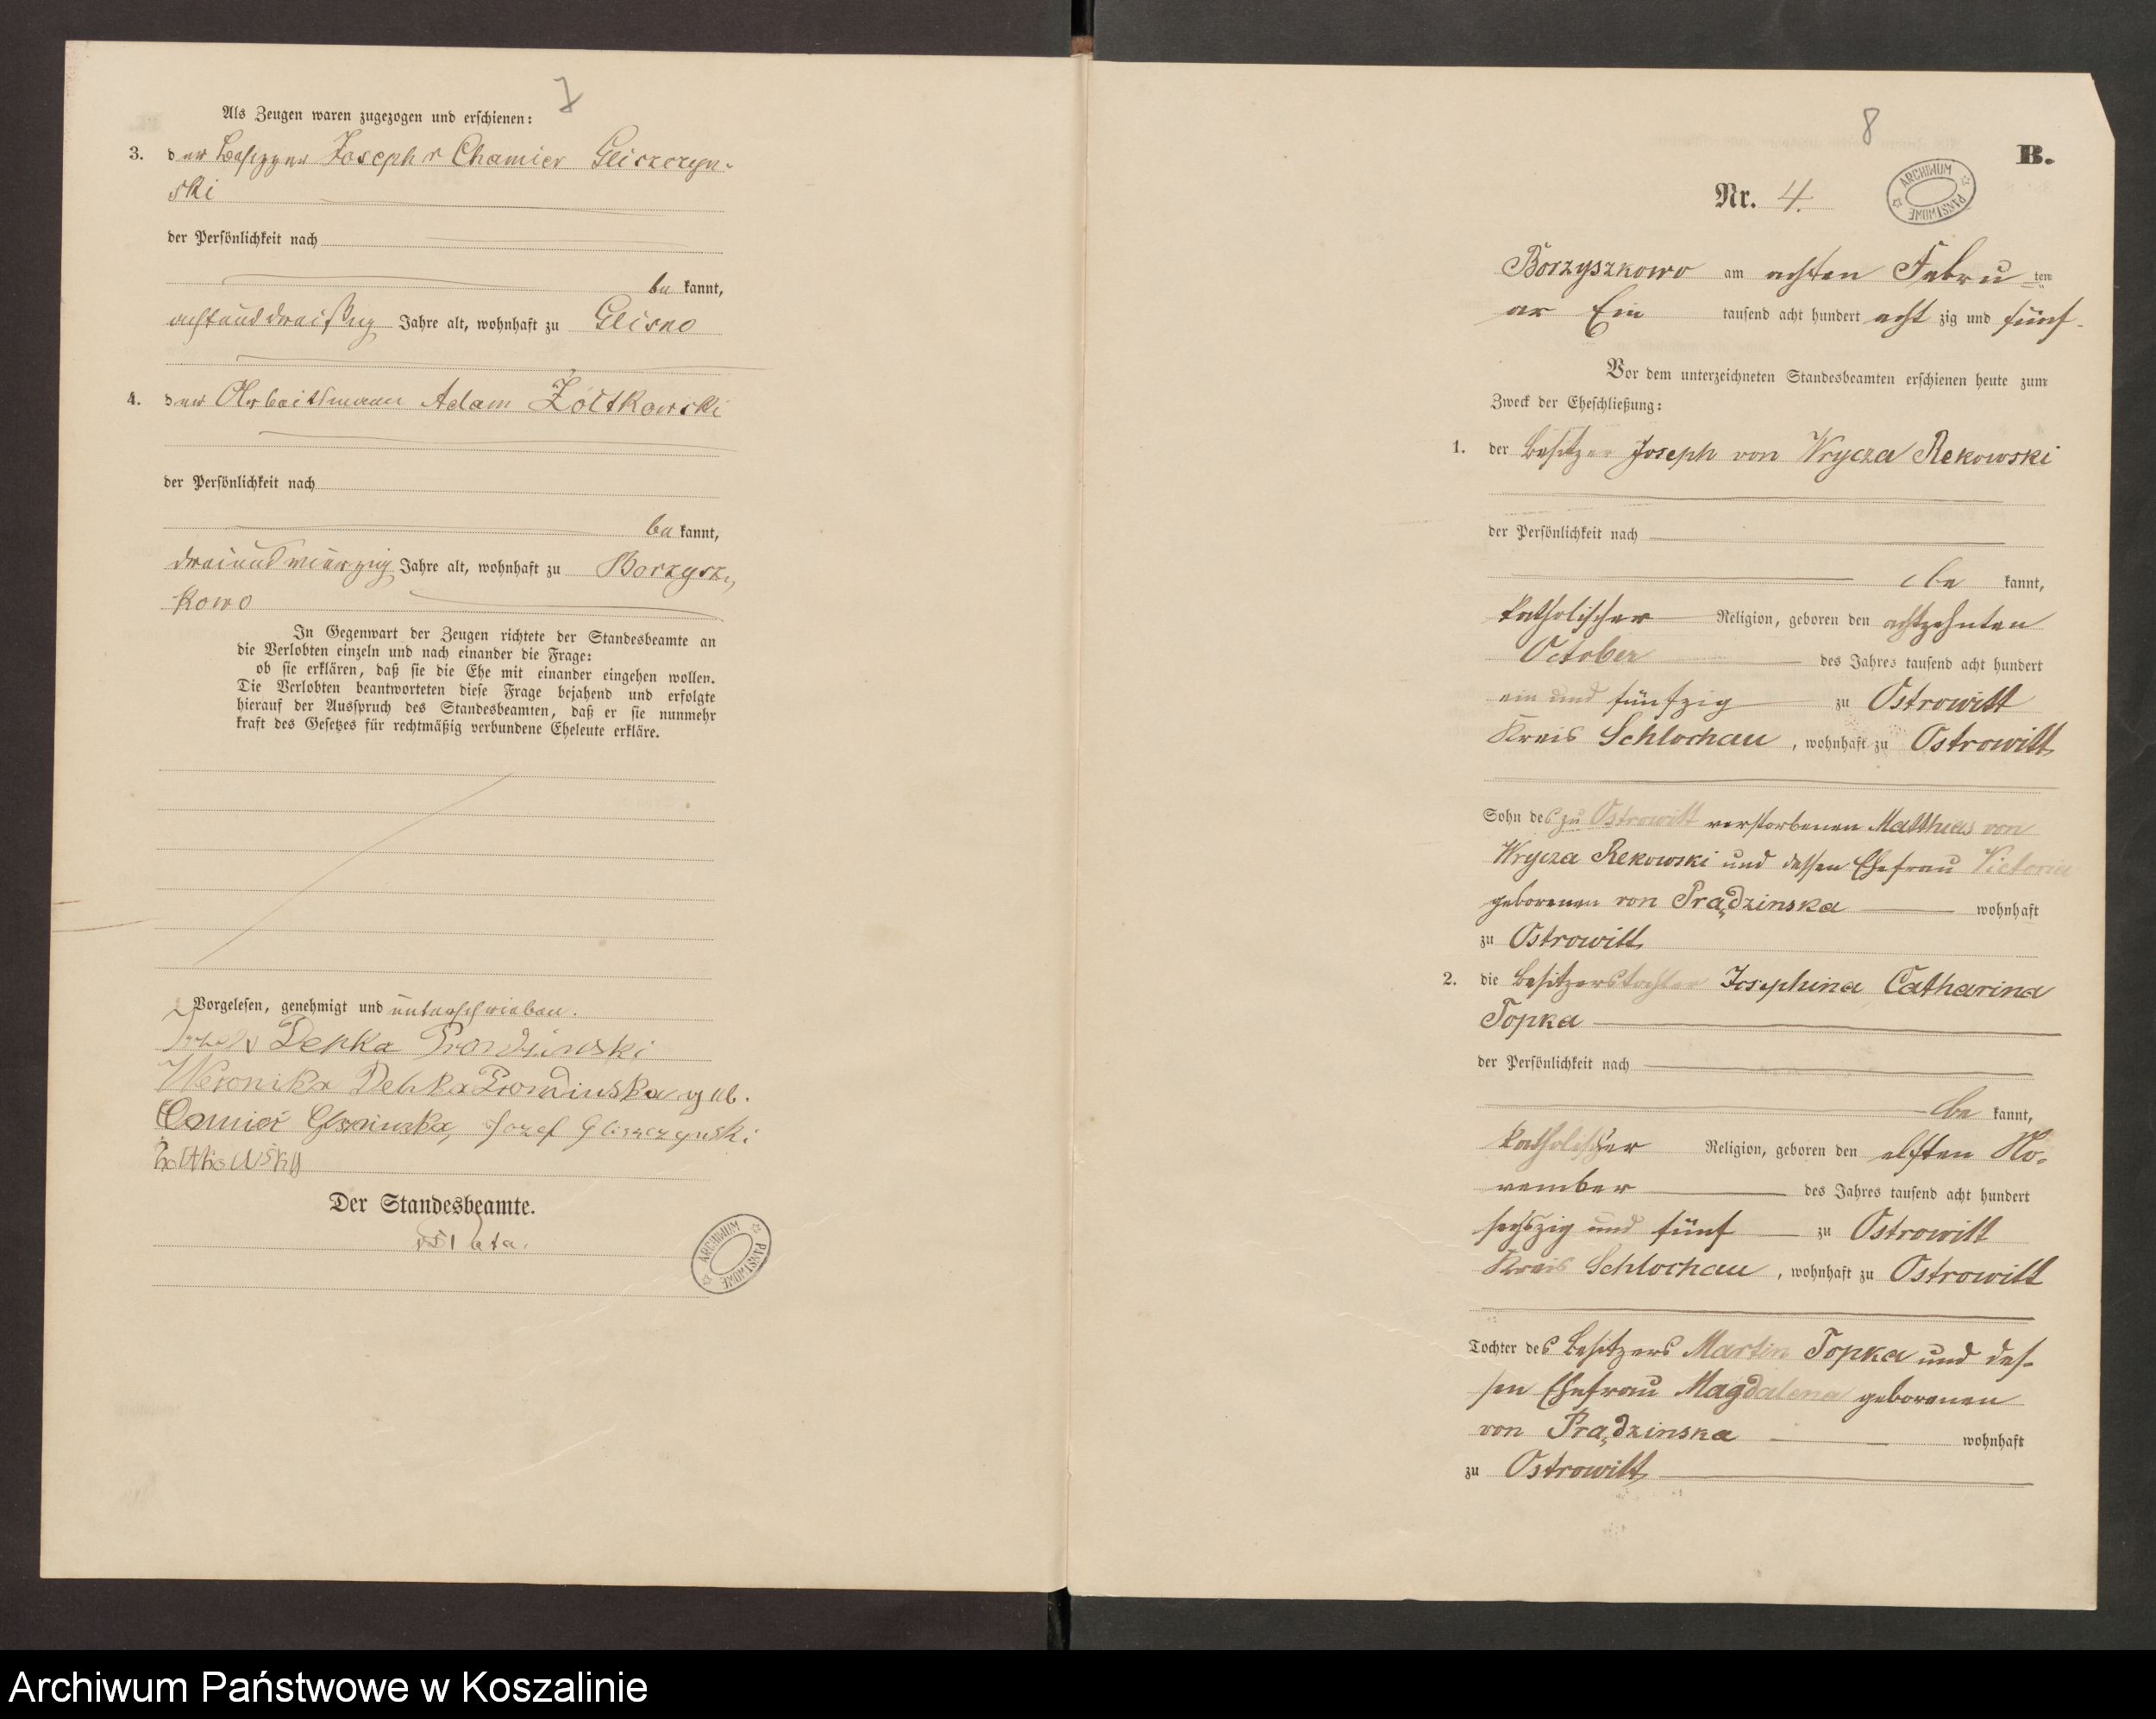 7
Als Zeugen waren zugezogen und erschienen:
3. der Besitzer Joseph v Chamier Gliszczyn-
ski
der Persönlichkeit nach
be kannt,
achtunddreißig Jahre alt, wohnhaft zu Glisno
4. der Arbeitsmann Adam Żółtkowski
der Persönlichkeit nach
be kannt,
dreiundvierzig Jahre alt, wohnhaft zu Borzysz-
kowo
In Gegenwart der Zeugen richtete der Standesbeamte an
die Verlobten einzeln und nach einander die Frage:
ob sie erklären, daß sie die Ehe mit einander eingehen wollen.
Die Verlobten beantworteten diese Frage bejahend und erfolgte
hierauf der Ausspruch des Standesbeamten, daß er sie nunmehr
kraft des Gesetzes für rechtmäßig verbundene Eheleute erkläre.
Vorgelesen, genehmigt und unterschrieben.
Depka Prondzinski
Weronika Depka Prondzinska geb.
Jozef Gliszczynski
Der Standesbeamte.
ARCHIWUM PAŃSTWOWE
8
B.
Nr. 4.
ARCHIWUM PAŃSTWOWE
Borzyszkowo am achten Febru ten
ar Ein tausend acht hundert acht zig und fünf.
Vor dem unterzeichneten Standesbeamten erschienen heute zum
Zweck der Eheschließung:
1. der Besitzer Joseph von Wrycza Rekowski
der Persönlichkeit nach
be kannt,
katholischer Religion, geboren den achtzehnten
October des Jahres tausend acht hundert
ein und fünfzig zu Ostrowitt
Kreis Schlochau, wohnhaft zu Ostrowitt
Sohn des zu Ostrowitt verstorbenen Matthias von
Wrycza Rekowski und dessen Ehefrau Victoria
geborenen von Prądzinska wohnhaft
zu Ostrowitt
2. die Besitzerstochter Josephina Catharina
Topka
der Persönlichkeit nach
be kannt,
katholischer Religion, geboren den elften No-
vember des Jahres tausend acht hundert
sechszig und fünf zu Ostrowitt
Kreis Schlochau, wohnhaft zu Ostrowitt
Tochter des Besitzers Martin Topka und des-
sen Ehefrau Magdalena geborenen
von Prądzinska wohnhaft
zu Ostrowitt
Archiwum Państwowe w Koszalinie